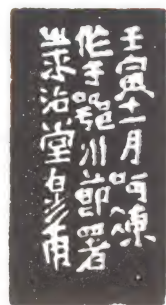 壬寅十一月呵凍
作于鄂川節署
治堂甫